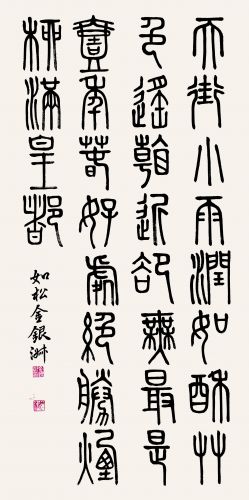 天街小雨潤如酥艸
色遙看近卻無最是
壹年春好處絕勝煙
柳滿皇都
如松金銀